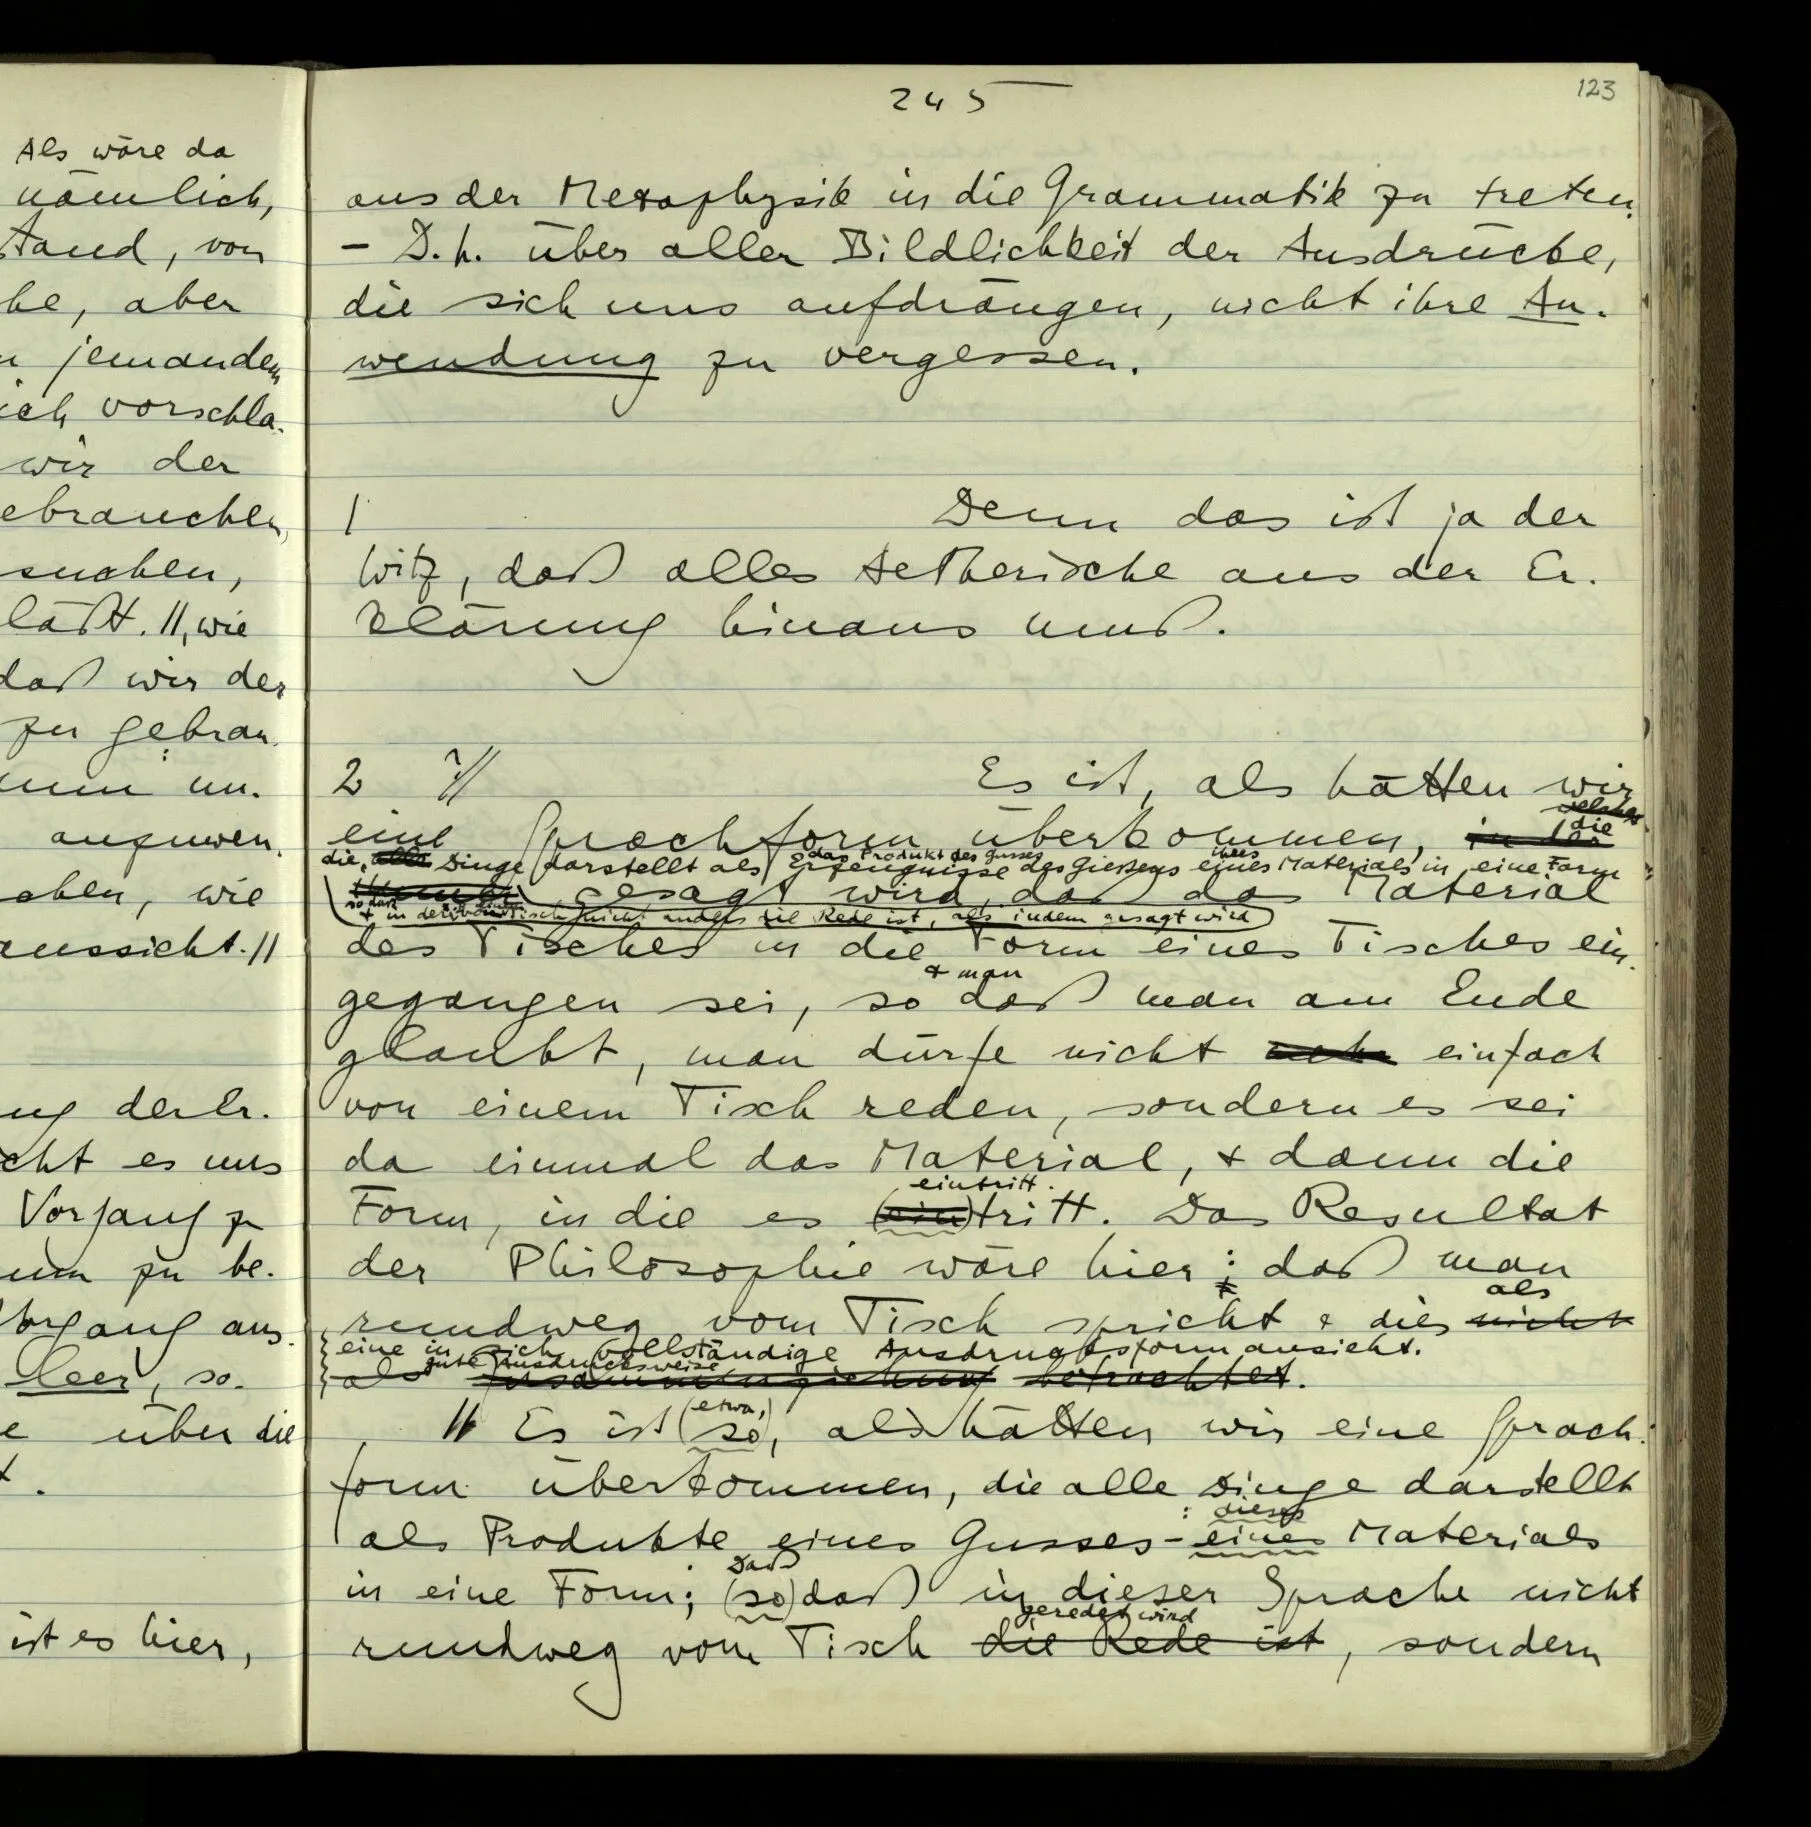 Als wäre da
nämlich,
stand, von
be, aber
jemandem
ich vorschla-
wir der
ebrauchen,
suchen,
läßt. //, wie
daß wir der
zu gebrau-
um un-
anzuwen-
aben, wie
aussicht. //
ung der Er-
cht es uns
Vorgang zu
um zu be-
Vorgang aus-
leer, so-
e über die
t.
ist es hier,
245
123
aus der Metaphysik in die Grammatik zu treten.
– D.h. über aller Bildlichkeit der Ausdrücke,
die sich uns aufdrängen, nicht ihre An-
wendung zu vergessen.
1 Denn das ist ja der
Witz, daß alles Aetherische aus der Er-
klärung hinaus muß.
2 ?// Es ist, als hätten wir
welcher
die
eine Sprachform überkommen, in der
das Produkt des Gusses
die, alle Dinge darstellt als Erzeugnisse des Gießens eines Materials in eine Form
immer gesagt wird, daß das Material
so daß
& in der vom Tisch nicht anders die Rede ist, als indem gesagt wird
des Tisches in die Form eines Tisches ein-
& man
gegangen sei, so daß man am Ende
glaubt, man dürfe nicht mehr einfach
von einem Tisch reden, sondern es sei
da einmal das Material, & dann die
eintritt.
Form, in die es (ein)tritt. Das Resultat
der Philosophie wäre hier: daß man
als
rundweg vom Tisch spricht & dies nicht
eine in sich vollständige Ausdrucksform ansieht.
gute Ausdrucksweise
als Zusammenziehung betrachtet.
etwa,
// Es ist (so), als hätten wir eine Sprach-
form überkommen, die alle Dinge darstellt
: dieses
als Produkte eines Gusses – eines Materials
Daß
in eine Form; (so)daß in dieser Sprache nicht
geredet wird
rundweg vom Tisch die Rede ist, sondern